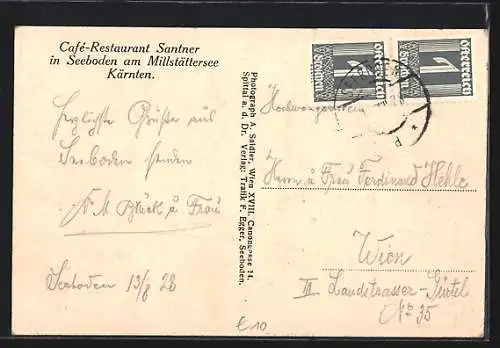 Café-Restaurant Santner
in Seeboden am Millstättersee
Kärnten.
Herzlichste Grüße aus
Seeboden senden
u. Frau
Seeboden 13/8 28
Photograph A. Saidler, Wien XVIII. Canongasse 14.
Spittal a. d. Dr. Verlag: Trafik F. Egger, Seeboden.
Österreich
1
Österreich
1
Herrn u Frau Ferdinand Hehle
Wien
III Landstrasser-Gürtel
No 35
€ 10